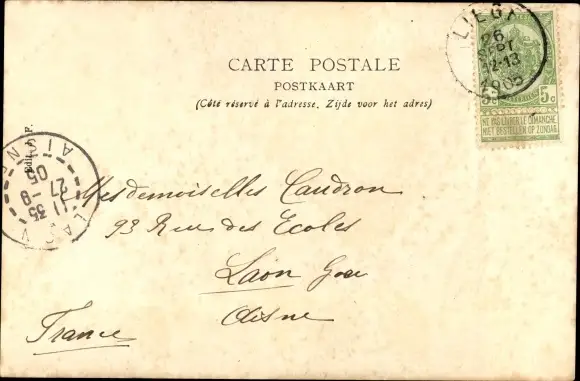 CARTE POSTALE
POSTKAART
(Côté réservé à l'adresse. Zijde voor het adres)
LIEGE
26
SEPT
12-13
1905
5c 5c
NE PAS LIVRER LE DIMANCHE
NIET BESTELLEN OP ZONDAG
LAON
AISNE
11 35
27 -9
05
Mesdemoiselles Caudron
93 Rue des Ecoles
Laon
Aisne
France